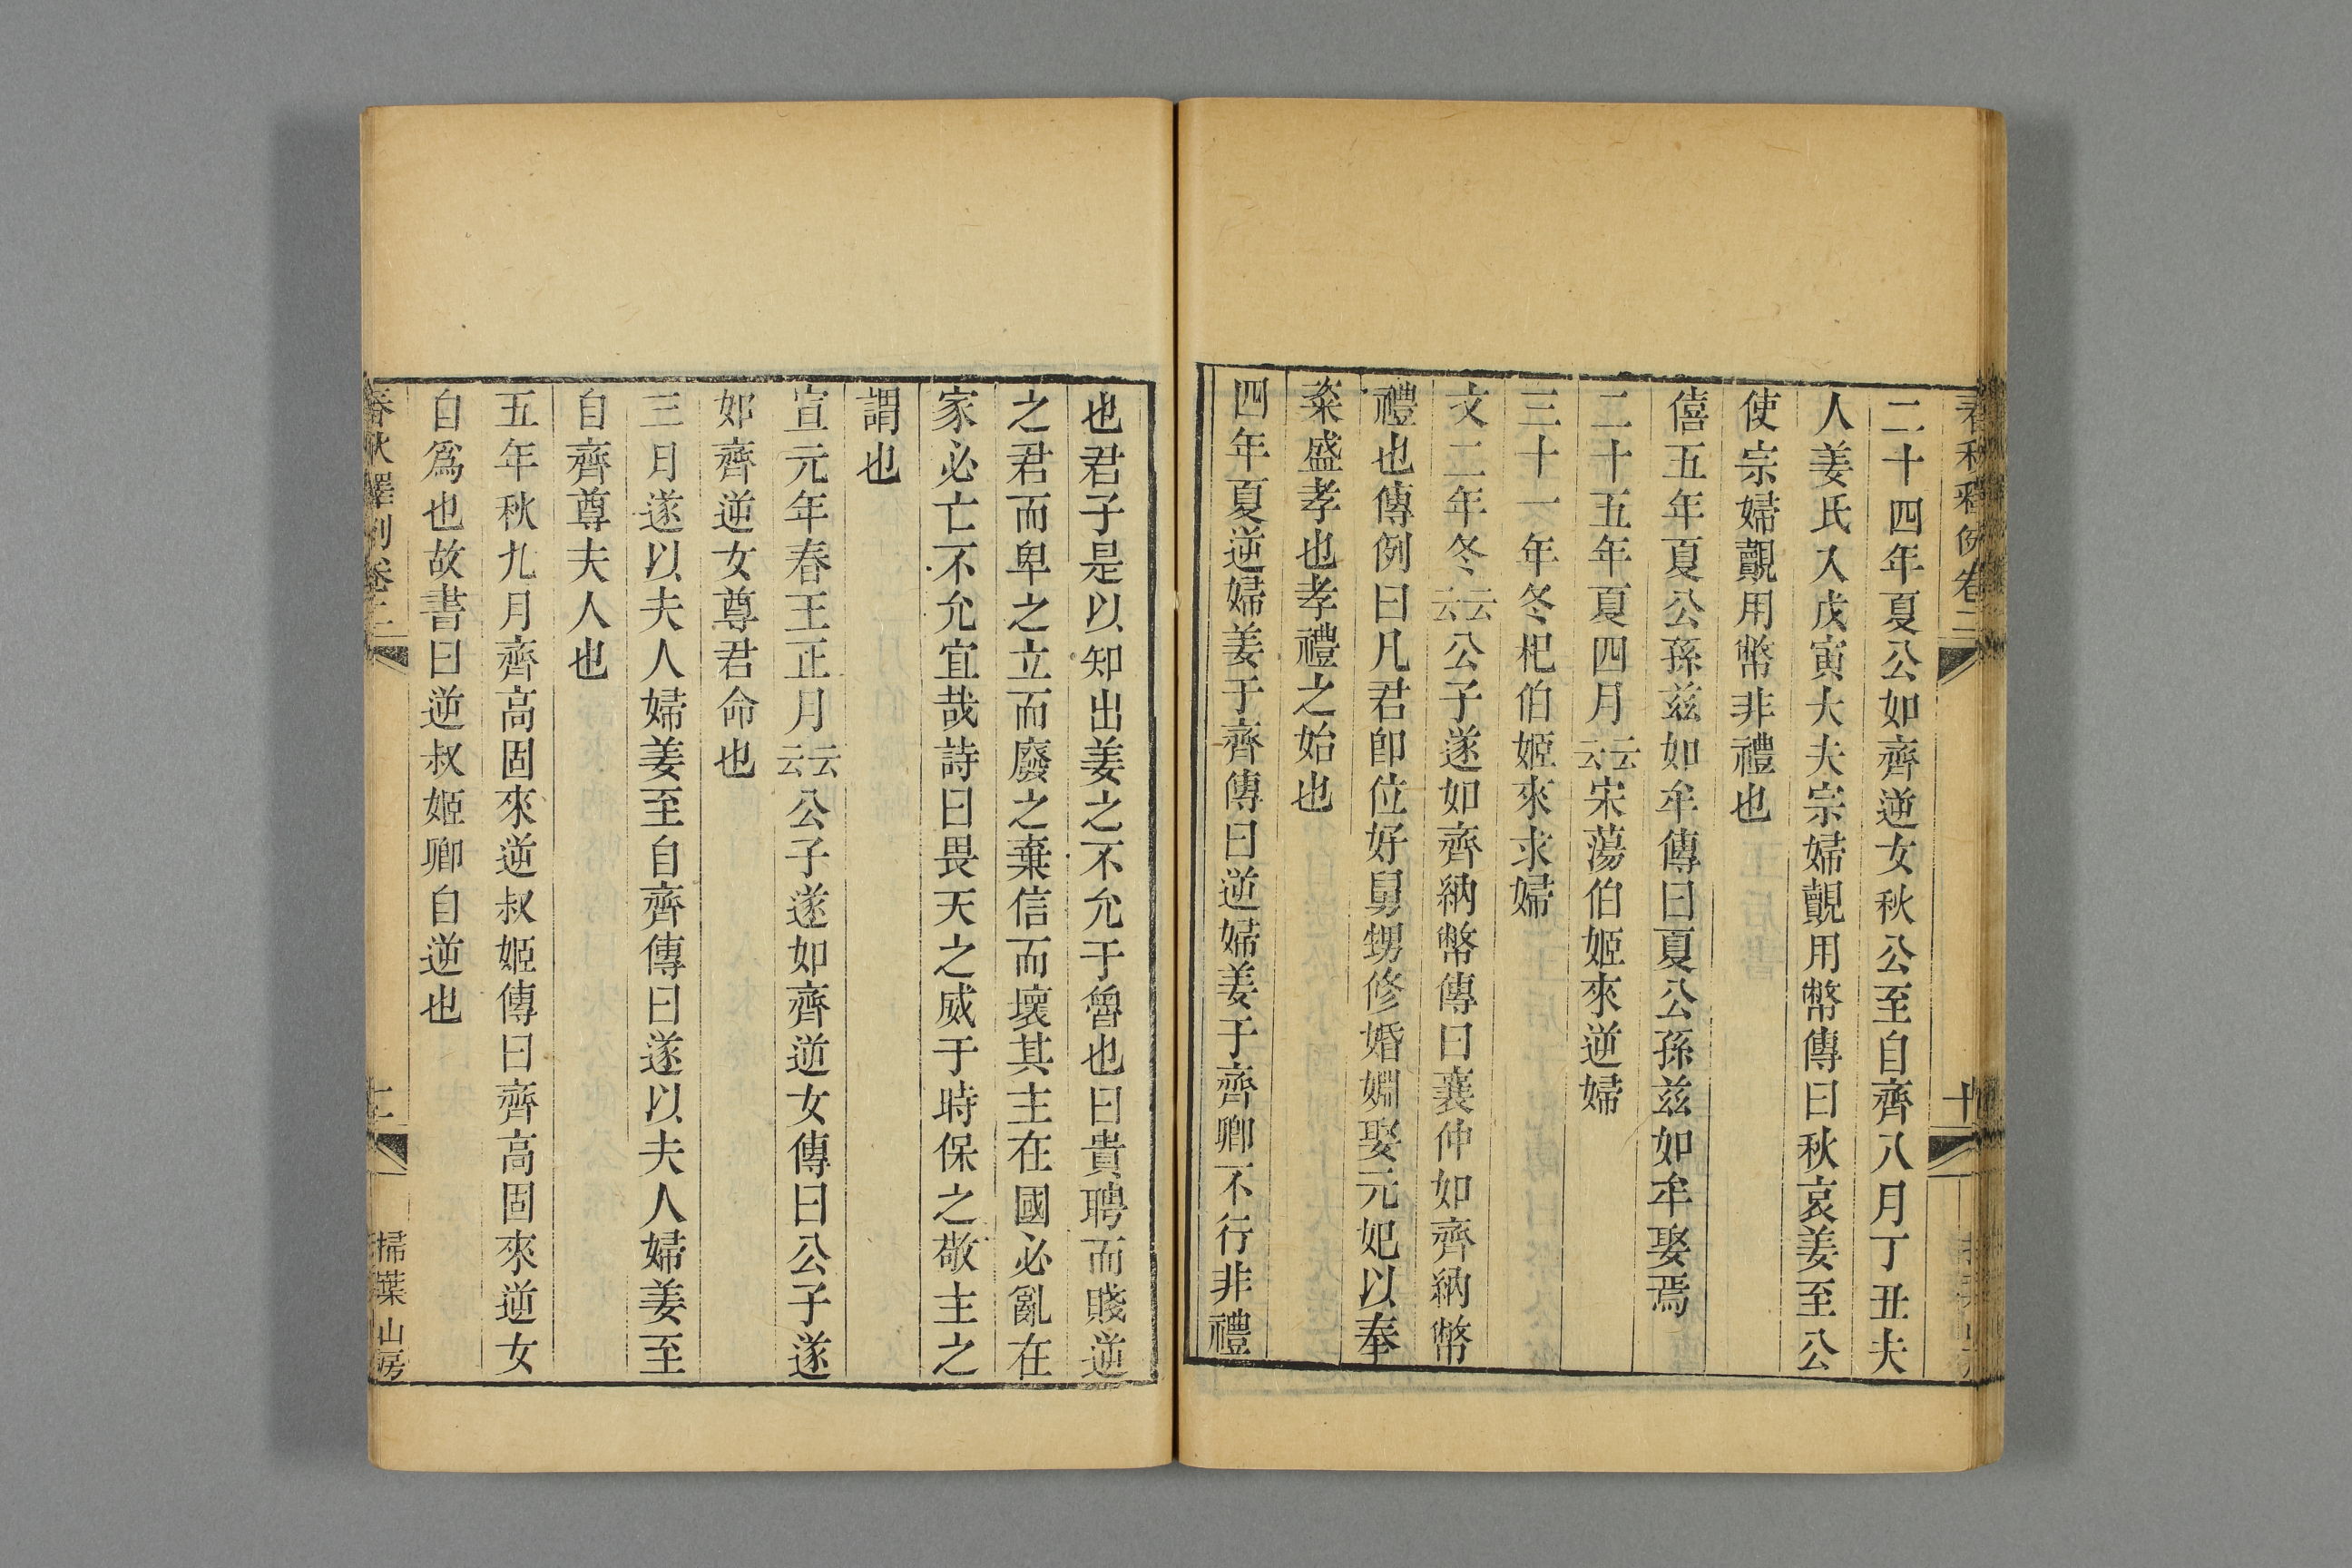 春秋釋例卷二
十
二十四年夏公如齊逆女秋公至自齊八月丁丑夫
人姜氏入戊寅大夫宗婦覿用幣傳曰秋哀姜至公
使宗婦覿用幣非禮也
僖五年夏公孫茲如牟傳曰夏公孫茲如牟娶焉
二十五年夏四月云云宋蕩伯姬來逆婦
三十一年冬杞伯姬來求婦
文二年冬云云公子遂如齊納幣傳曰襄仲如齊納幣
禮也傳例曰凡君卽位好舅甥修婚姻娶元妃以奉
粢盛孝也孝禮之始也
四年夏逆婦姜于齊傳曰逆婦姜于齊卿不行非禮
也君子是以知出姜之不允于魯也曰貴聘而賤逆
之君而卑之立而廢之棄信而壞其主在國必亂在
家必亡不允宜哉詩曰畏天之威于時保之敬主之
謂也
宣元年春王正月云云公子遂如齊逆女傳曰公子遂
如齊逆女尊君命也
三月遂以夫人婦姜至自齊傳曰遂以夫人婦姜至
自齊尊夫人也
五年秋九月齊高固來逆叔姬傳曰齊高固來逆女
自爲也故書曰逆叔姬卿自逆也
春秋釋例卷二
十一
掃葉山房